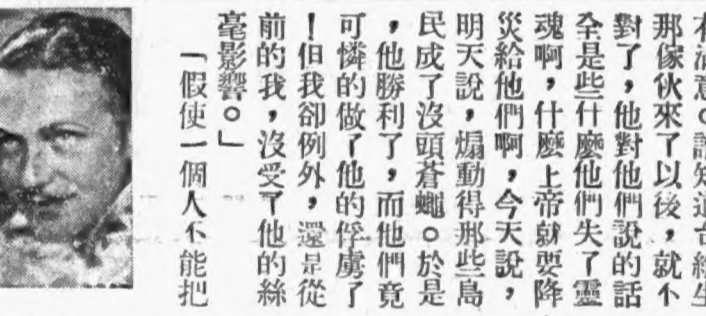 滿意。誰知道台
那傢伙來了以後，就不
對了，他對他們說的話
全是些什麼他們失了靈
魂啊，什麼上帝就要降
災給他們啊，今天說，
明天說，煽動得那些島
民成了沒頭蒼蠅。於是
，他勝利了，而他們竟
可憐的做了他的俘虜了
！但我卻例外，還是從
前的我，沒受了他的絲
毫影響。」
「假使一個人不能把